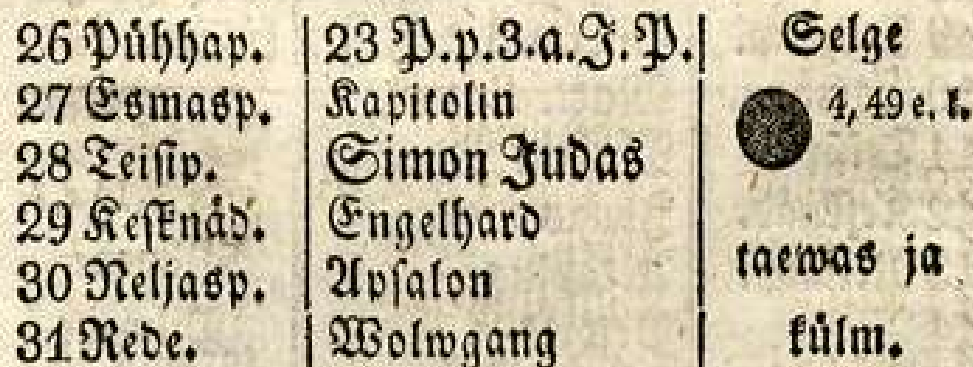 26 Pühhap. 23 P.p.3.a.J.P. Selge
27 Esmasp. Kapitolin 4, 49 e. k.
28 Teisip. Simon Judas
29 Kesknäd. Engelhard
30 Neljasp. Apsalon taewas ja
31 Rede. Wolwgang külm.